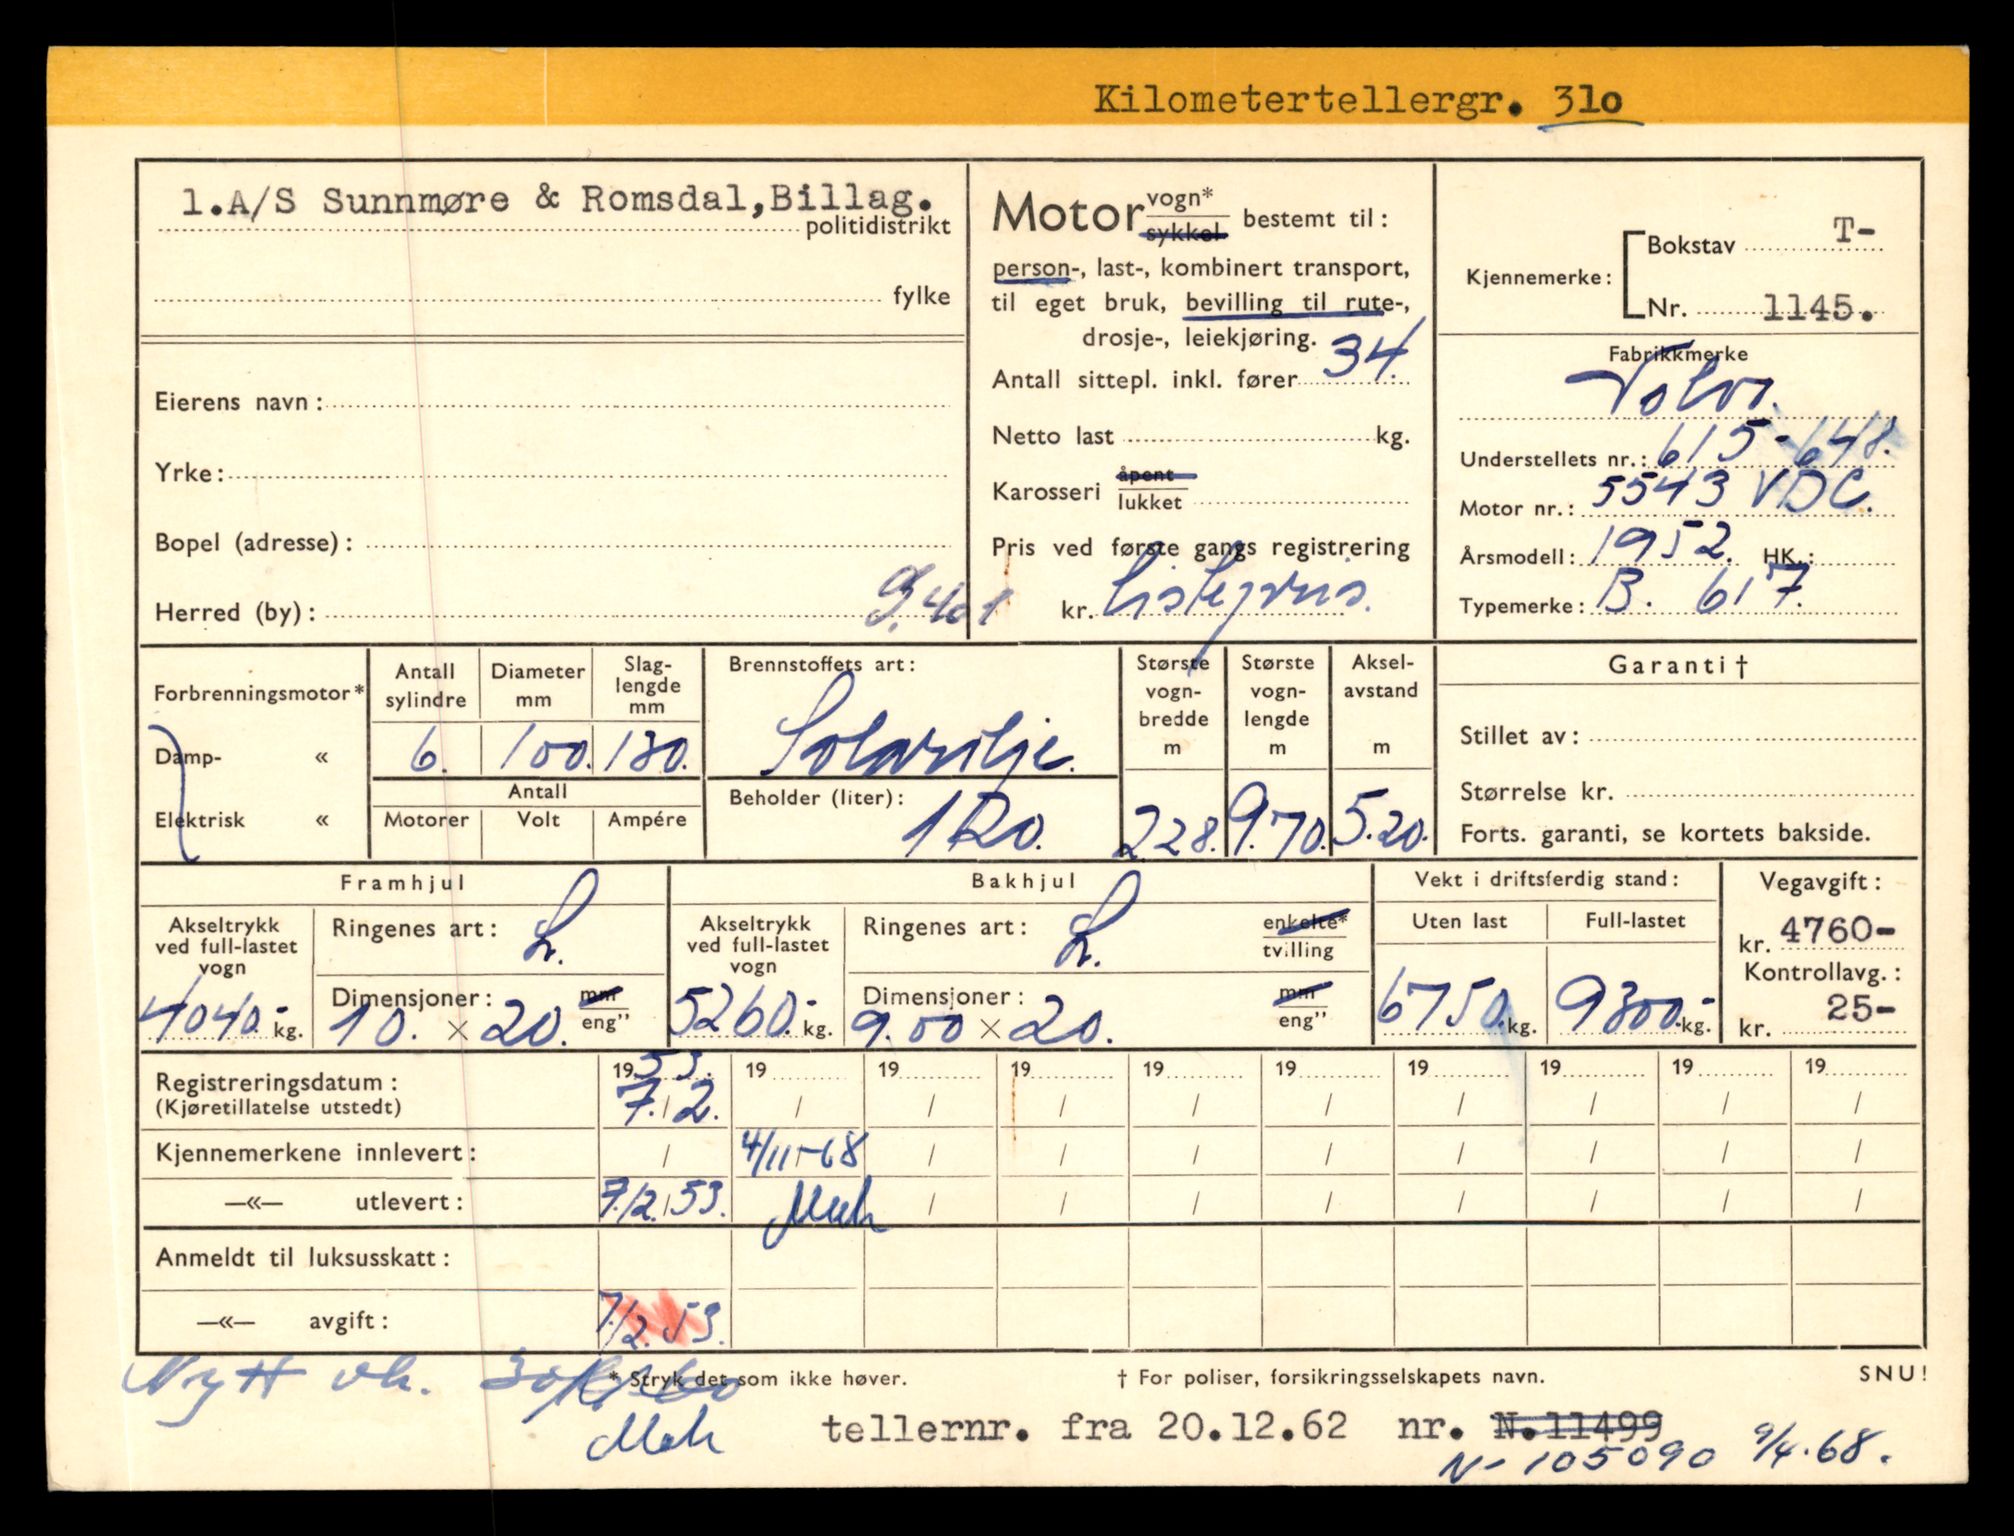 Kilometertellergr. 31o
1.A/S Sunnmøre & Romsdal,Billag.
politidistrikt
fylke
Eierens navn:
Yrke:
Bopel (adresse):
Herred (by):
Motor vogn* sykkel bestemt til:
person-, last-, kombinert transport,
til eget bruk, bevilling til rute-,
drosje-, leiekjøring.
Antall sittepl. inkl. fører 34.
Netto last kg.
Karosseri åpent lukket
Pris ved første gangs registrering
kr. Listepris.
Kjennemerke: Bokstav T-
Nr. 1145.
Fabrikkmerke
Volvo.
Understellets nr.: 615-648.
Motor nr.: 5543 VDC.
Årsmodell: 1952. HK.:
Typemerke: B. 617.
Forbrenningsmotor*
Damp- «
Elektrisk «
Antall sylindre
6.
Diameter mm
100.
Slaglengde mm
130.
Antall
Motorer Volt Ampére
Brennstoffets art:
Solarolje.
Beholder (liter):
120.
Største vognbredde m
2.28.
Største vognlengde m
9.70.
Akselavstand m
5.20.
Garanti†
Stillet av:
Størrelse kr.
Forts. garanti, se kortets bakside.
Framhjul
Akseltrykk ved full-lastet vogn
4040.- kg.
Ringenes art: L.
Dimensjoner: mm eng”
10. × 20.
Bakhjul
Akseltrykk ved full-lastet vogn
5260.- kg.
Ringenes art: L. enkelte* tvilling
Dimensjoner: mm eng”
9.00 × 20.
Vekt i driftsferdig stand:
Uten last Full-lastet
6750. kg. 9300.- kg.
Vegavgift:
kr. 4760-
Kontrollavg.:
kr. 25-
Registreringsdatum: 1953. 19 19 19 19 19 19 19 19 19
(Kjøretillatelse utstedt) 7./2. / / / / / / / / /
Kjennemerkene innlevert: / 4/11-68 / / / / / / / /
—«— utlevert: 7./2./53. Meh / / / / / / / /
Anmeldt til luksusskatt:
—«— avgift: 7./2. 53.
Nytt vk.
* Stryk det som ikke høver. † For poliser, forsikringsselskapets navn. SNU!
Meh
tellernr. fra 20.12.62 nr. N.11499
N- 105090 9/4.68.